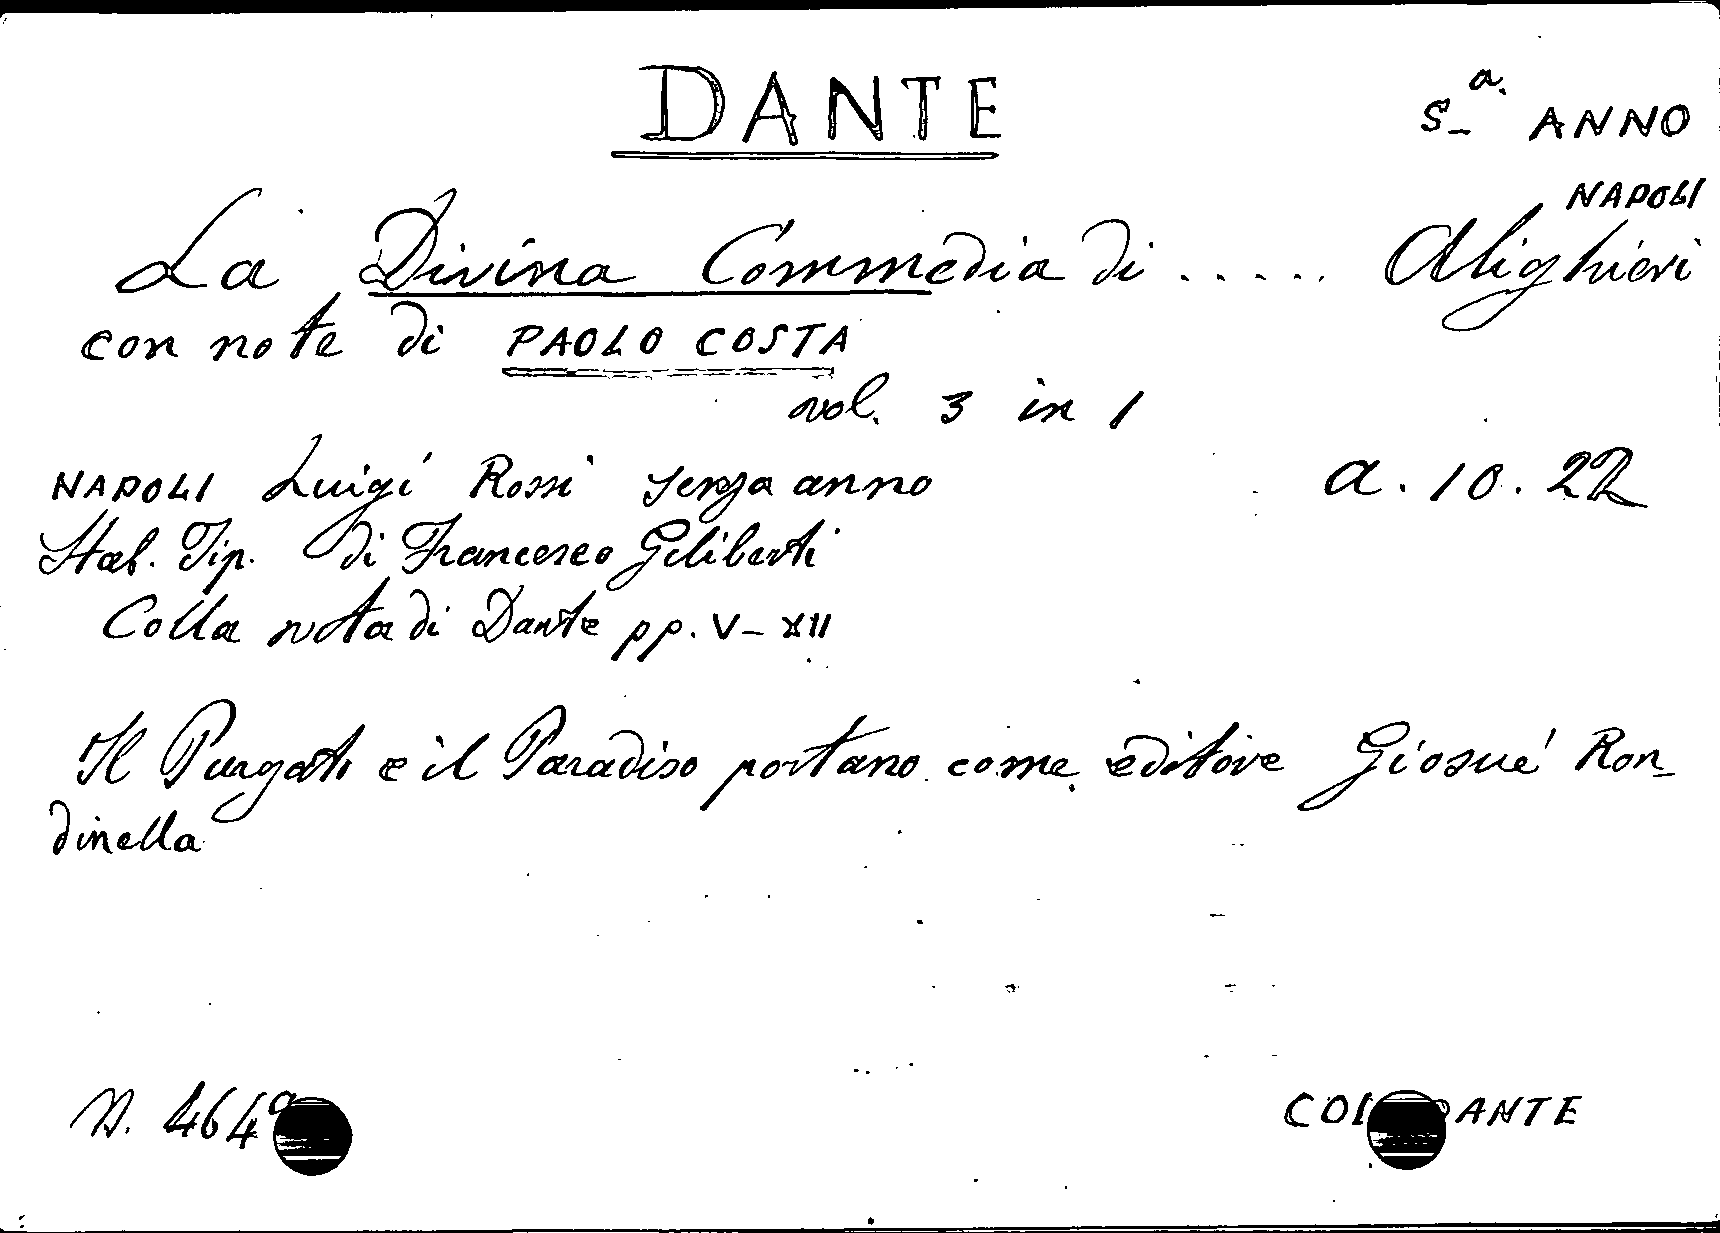 DANTE
S_a. ANNO
NAPOLI
La Divina Commedia di ..... Alighieri
con note di PAOLO COSTA
vol. 3 in 1
NAPOLI Luigi Rossi senza anno
a. 10. 22
Stab. Tip. di Francesco Giliberti
Colla nota di Dante pp. V-XII
Il Purgato e il Paradiso portano come editore Giosué Ron-
dinella
N. 464a
ANTE